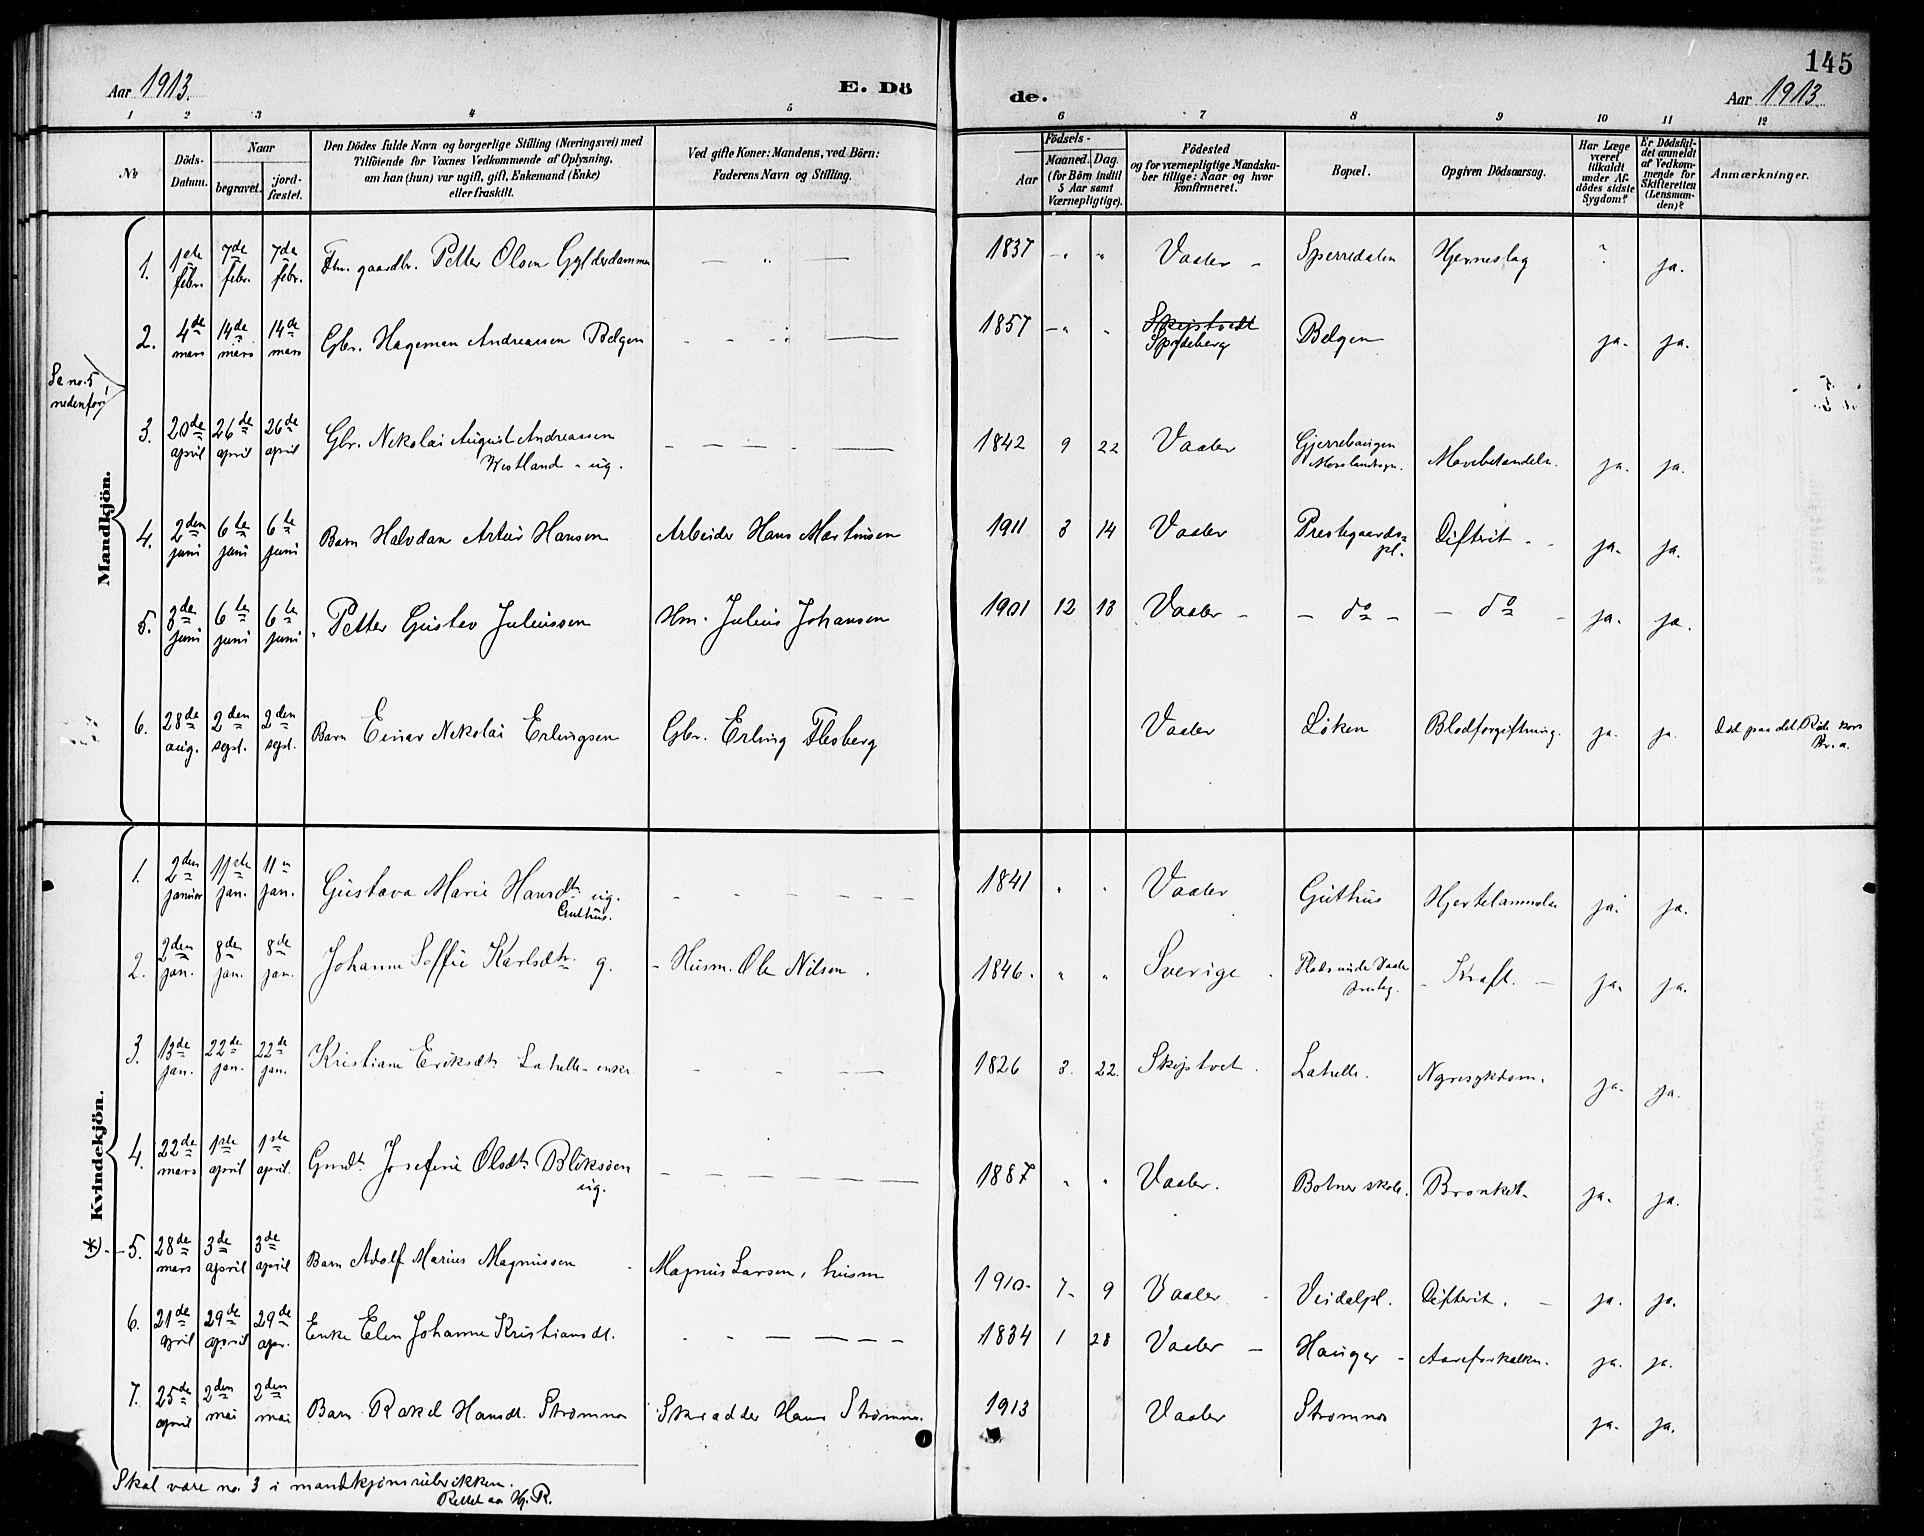 145
Aar 1913. E. Dö de. Aar 1913
1 2 3 4 5 6 7 8 9 10 11 12
No
Döds-Datum.
Naar
begravet.
jordfæstet.
Den Dödes fulde Navn og borgerlige Stilling (Næringsvei) med
Tilföiende for Voxnes Vedkommende af Oplysning,
om han (hun) var ugift, gift, Enkemand (Enke)
eller fraskilt.
Ved gifte Koner: Mandens, ved Börn:
Faderens Navn og Stilling.
Födsels-
Aar
Maaned. Dag.
(for Börn indtil
5 Aar samt
Værnepligtige).
Födested
og for værnepligtige Mandskaber tillige: Naar og hvor
konfirmeret.
Bopæl.
Opgiven Dödsaarsag.
Har Læge
været
tilkaldt
under Afdödes sidste
Sygdom?
Er Dödsfaldet anmeldt
af Vedkommende for
Skifteretten
(Lensmanden)?
Anmærkninger.
Mandkjön.
1. 1ste febr. 7de febr. 7de febr. Fhv. gaardbr. Petter Olsen Gylderdammen — " — 1837 - " " Vaaler - Sperredalen Hjerneslag " ja.
2. 4de mars 14de mars 14de mars Gbr. Hageman Andreassen Belgen - - - : — 1857 - " " Skiptvedt Spydeberg Belgen ja. ja.
Se no. 5
nedenfor!
3. 20de april 26de april 26de april Gbr. Nikolai August Andreassen
Westland - ug. - - - - — 1842 9 22 Vaaler Gjerrebaugen ja. ja.
4. 2den juni 6te juni 6te juni Barn Halvdan Artur Hansen Arbeider Hans Martinsen 1911 3 14 Vaaler Prestegaards=
pl. Difterit - - ja. ja.
5. 3de juni 6te juni 6te juni " Petter Gustav Juliussen Hm. Julius Johansen 1901 12 13 Vaaler - - do - - do - ja. ja.
6. 28de aug. 2den sept. 2den sept. Barn Einar Nikolai Erlingsen Gbr. Erling Flesberg Vaaler Løken Blodforgiftning. ja. ja. Død paa det Røde kors
Kr.a.
Kvindekjön.
1. 2den januar 11ste jan. 11n jan. Gustava Marie Hansdtr ug.
Guthus. - - - - - - 1841 " " Vaaler Guthus Hjertelammelse ja. ja.
2. 2den jan. 8de jan. 8de jan. Johanne Soffie Karlsdtr. g. - Husm. Ole Nilsen. 1846. " " Sverige. Plads under Vaaler
presteg. - Kræft. - ja. ja.
3. 13de jan. 22de jan. 22de jan. Kristiane Eriksdtr Latulle - enke - - - — 1826 3. 22. Skiptvet. Latulle. Nyresykdom. ja. ja.
4. 22de mars 1ste april 1ste april. Gmdtr Josefine Olsdtr Bliksøen
ug. - - - - - - 1887 " " Vaaler. Botner skole. Bronkit. ja. ja.
*) - 5. 28de mars 3de april 3de april Barn Adolf Marius Magnussen - Magnus Larsen, husm 1910. 7. 9 Vaaler - Veidalpl. Difterit. - ja. ja.
6. 21de april 29de april 29de apr. Enke Elen Johanne Kristiansdt. - - - - - - 1834 1 28 Vaaler - Hauger - Aareforkalkn. ja. ja.
7. 25de april 2den mai 2den mai Barn Rakel Hansdt. Strømnes Skrædder Hans Strømnes. 1913 Vaaler Strømnes ja. ja.
Skal være no. 3 i mandkjønsrubrikken.
Rettet av Hj. R.